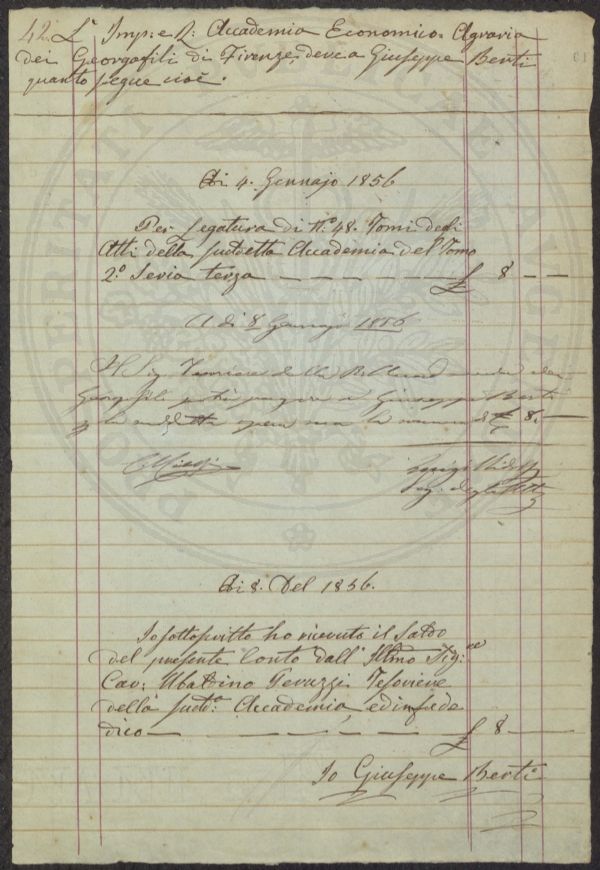 42. L' Imp: e R: Accademia Economico-Agraria
dei Georgofili di Firenze, deve a Giuseppe Berti
quanto segue cioè.
Adi 4. Gennajo 1856
Per legatura di N.º 48. Tomi degli
Atti della suddetta Accademia del Tomo
2.º Seria terza — — — — £ 8 — —
A dì 8 Gennajo 1856
Il Sig. della
Georgofili potrà pagare a Giuseppe Berti
la somma di £ 8. —
Luigi
Seg. degli Atti
Adi 8. Del 1856.
Io sottoscritto ho ricevuto il Saldo
del presente Conto dall' Illmo Sig:re
Cav: Ubaldino Peruzzi Tesoriere
della sudd.a Accademia, ed in fede
dico — — — — £ 8 — —
Io Giuseppe Berti